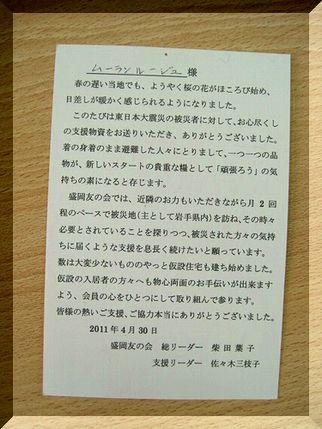 ムーランルージュ 様
春の遅い当地でも、ようやく桜の花がほころび始め、
日差しが暖かく感じられるようになりました。
このたびは東日本大震災の被災者に対して、お心尽くし
の支援物資をお送りいただき、ありがとうございました。
着の身着のまま避難した人々にとりまして、一つ一つの品
物が、新しいスタートの貴重な糧として「頑張ろう」の気
持ちの素になると存じます。
盛岡友の会では、近隣のお力もいただきながら月2回
程のペースで被災地(主として岩手県内)を訪ね、その時々
必要とされていることを探りつつ、被災された方々の気持
ちに届くような支援を息長く続けたいと願っています。
数は大変少ないもののやっと仮設住宅も建ち始めました。
仮設の入居者の方々へも物心両面のお手伝いが出来ます
よう、会員の心をひとつにして取り組んで参ります。
皆様の熱いご支援、ご協力本当にありがとうございました。
2011年4月30日
盛岡友の会 総リーダー 柴田葉子
支援リーダー 佐々木三枝子